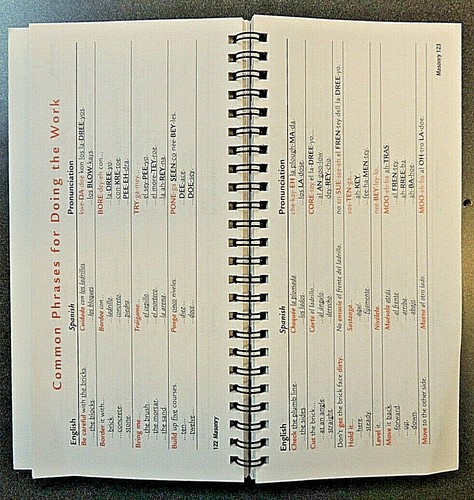 Common Phrases for Doing the Work
English Spanish Pronunciation
Be careful with the bricks. Cuidado con los ladrillos. kwi-DA-doe kon los la-DREE-yos.
...the blocks. los bloques. los BLOW-kays.
Border it with... Bordee con... BORE-day-eh con...
...brick. ...ladrillo. ...la-DREE-yo.
...concrete. ...concreto. ...con-KRE-toe.
...stone. ...piedra. ...PEE-EH-dra.
Bring me... Tráigame... TRY-ga-mey...
...the brush. ...el cepillo. ...el sey-PEE-yo.
...the mortar. ...el mortero. ...el more-TEY-roe.
...the sand. ...la arena. ...la ah-REY-na.
Build up five courses. Ponga cinco niveles. PONE-ga SEEN-co nee-BEY-les.
...ten... ...diez... ...DEE-ace.
...twelve... ...doce... ...DOE-sey.
122 Masonry
English Spanish Pronunciation
Check the plumb line. Cheque la plomada. che-key-EH la plough-MA-da.
...the sides los lados. los LA-dose.
Cut the brick... Corte el ladrillo... CORE-tey el la-DREE-yo...
...at an angle. ...en ángulo. AN-goo-low.
...straight. ...derecho. dey-REY-cho.
Don't get the brick face dirty. No ensucie el frente del ladrillo. no en-SUE-see-eh el FREN-tey dell la-DREE-yo.
Hold it... Sostenga... sos-TEN-ga...
...here ...aquí. ah-KEY.
...steady. ...fijamente. fee-ha-MEN-tey
Level it. Nivélelo. nee-BEY-ley-lo.
Move it back. Muévalo atrás. MOO-eh-ba ah-TRAS
...forward al frente. al FREN-tey
...up. arriba. ah-RREE-ba
...down. abajo. ah-BA-hoe
Move to the other side. Mueva al otro lado. MOO-eh-ba al OH-tro LA-doe.
Masonry 123